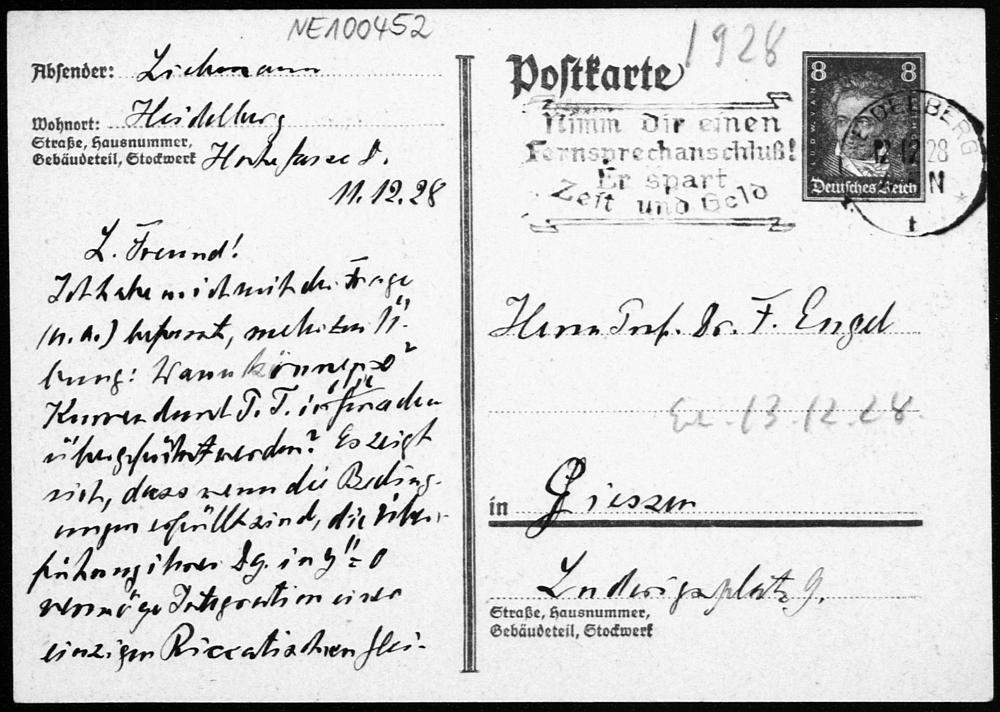 NE100452
1928
Absender: Liebmann
Wohnort: Heidelberg
Straße, Hausnummer,
Gebäudeteil, Stockwerk
8.
11.12.28
L. Freund!
Ich habe mich mit der Frage
(u. a.) befasst, mehr zur Ü-
bung: Wann können ∞²
Kurven durch P. T. in Geraden
übergeführt werden? Es zeigt
sich, dass wenn die Beding-
ungen erfüllt sind, die Über-
führung ihrer Dg. in y″ = 0
vermöge Integration einer
einzigen Riccatischen Glei-
Postkarte
Nimm dir einen
Fernsprechanschluß!
Er spart
Zeit und Geld
8 8
LUDW. VAN
Deutsches Reich
HEIDELBERG
12.12.28
N
* t *
Herrn Prof. Dr. F. Engel
13.12.28.
in Giessen
Ludwigsplatz 9.
Straße, Hausnummer,
Gebäudeteil, Stockwerk